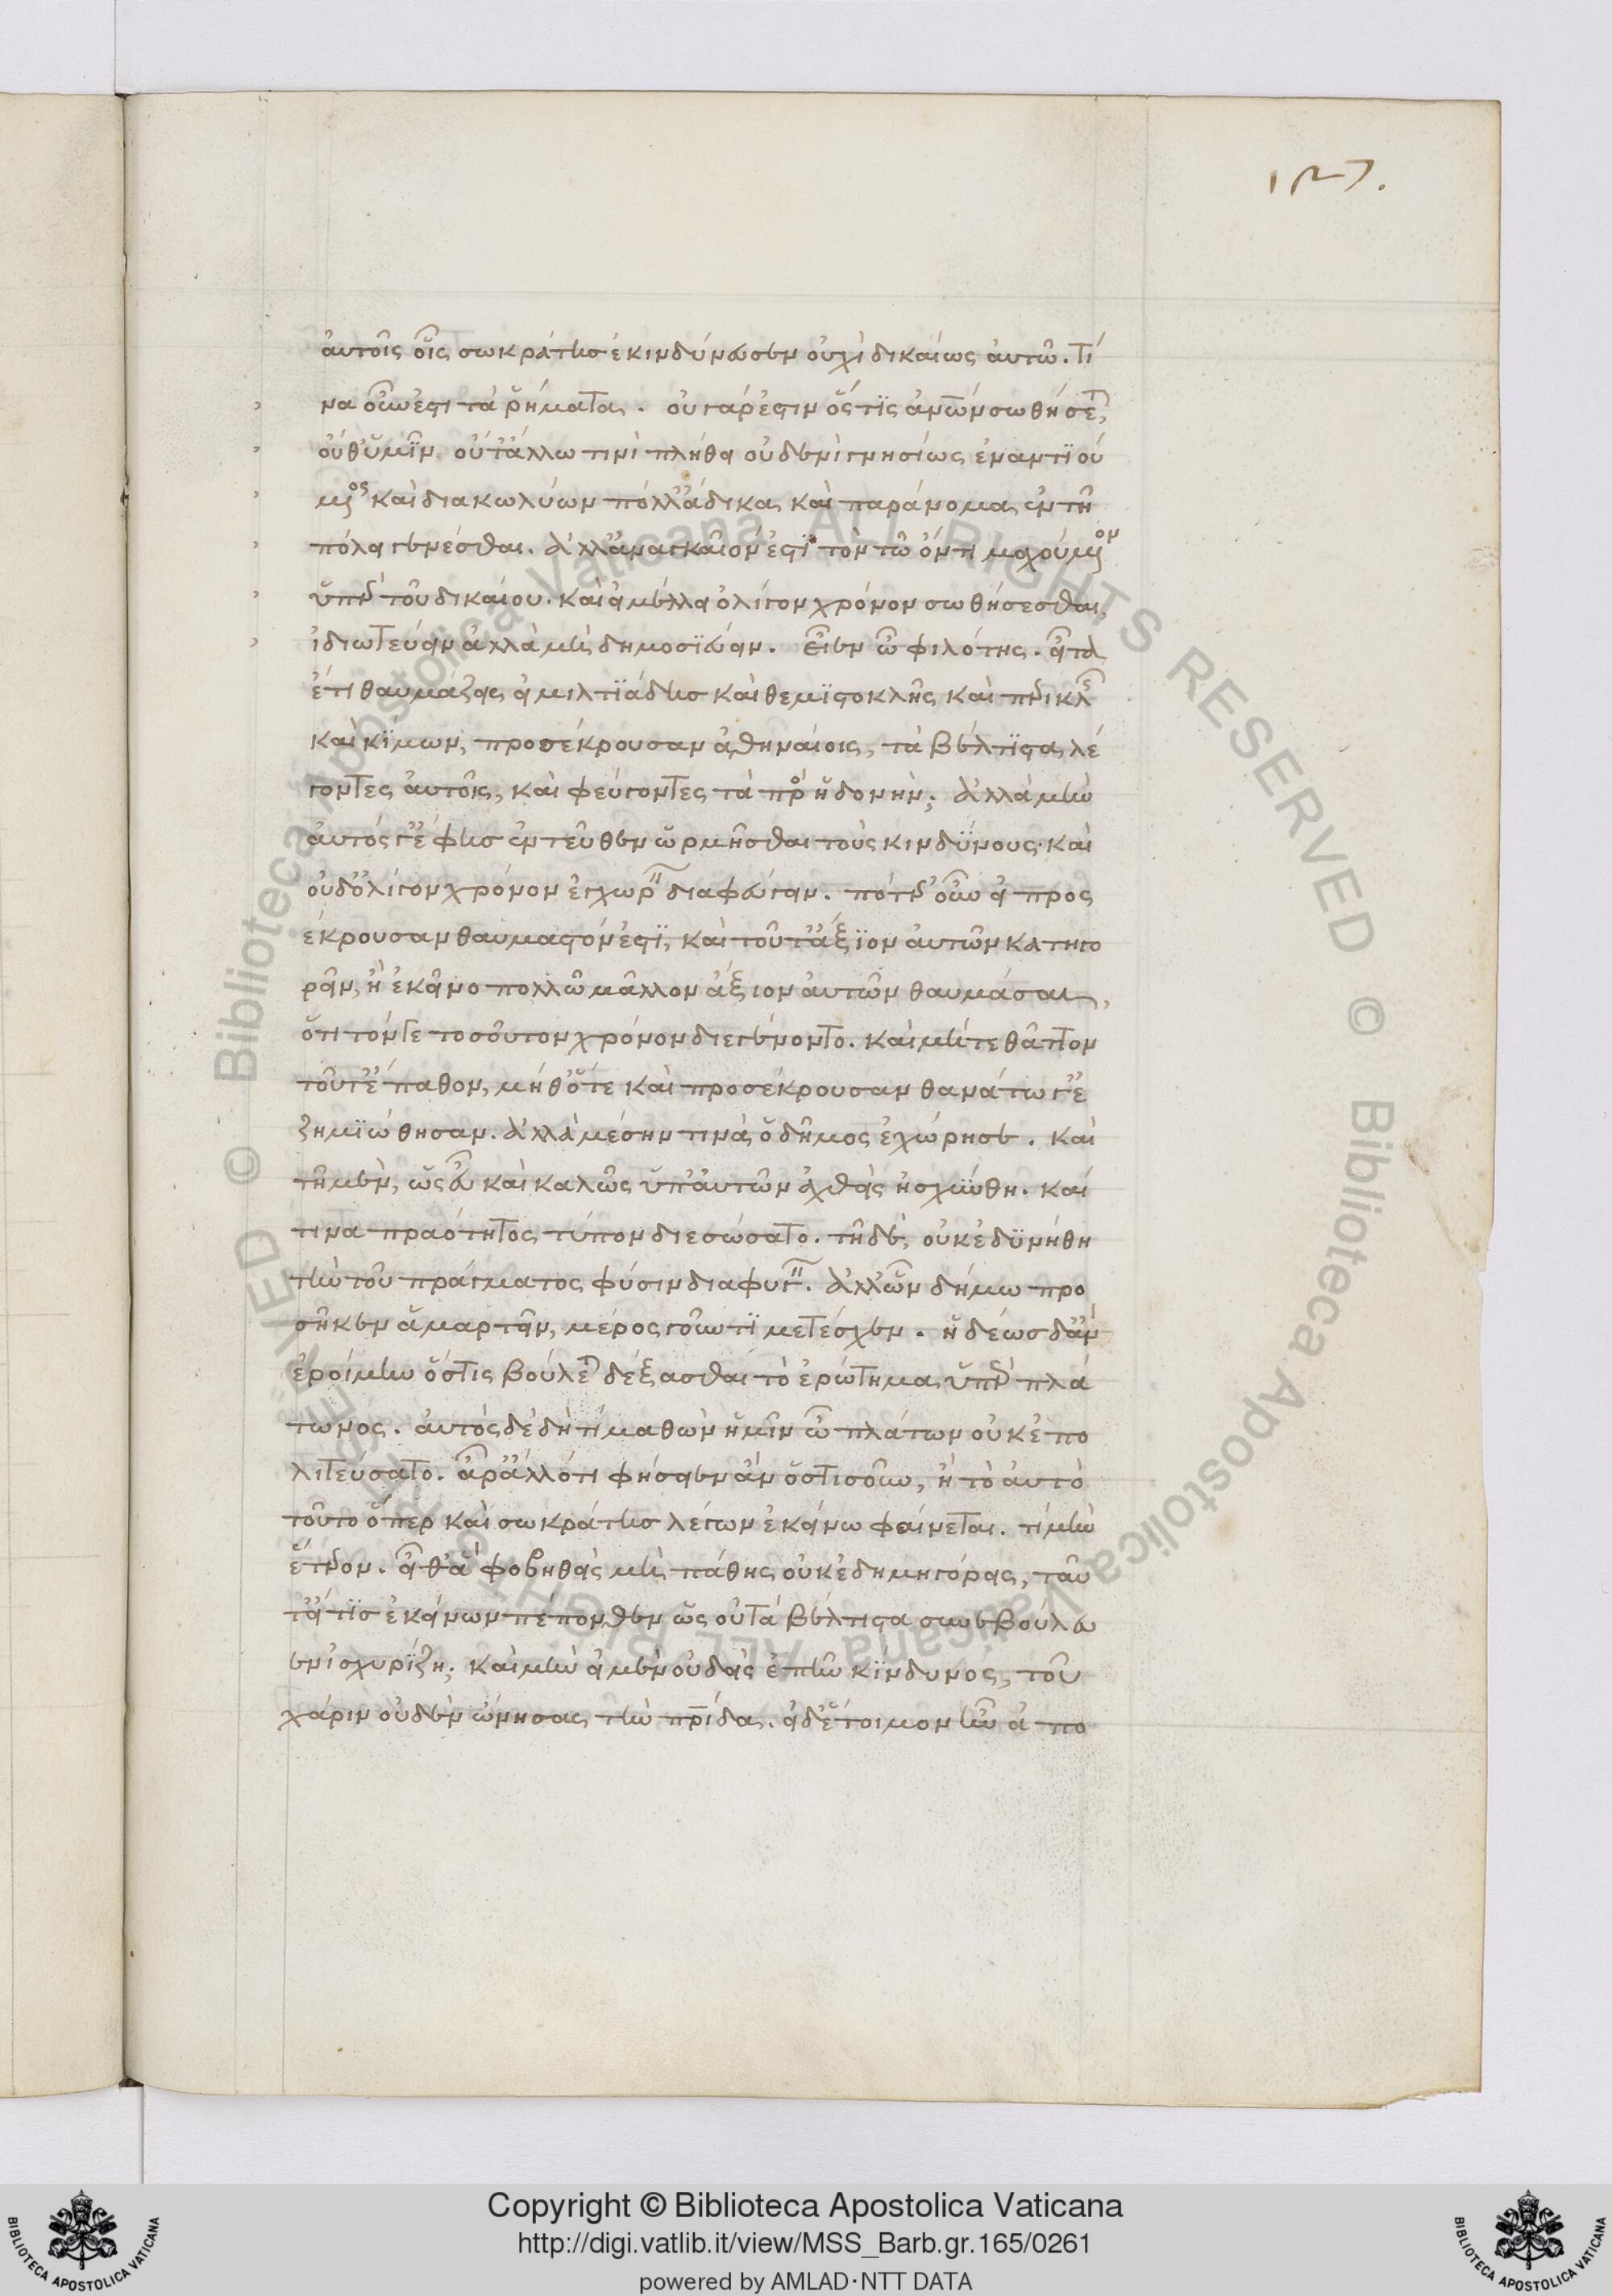 127.
αὐτοῖς οἷς σωκράτης ἐκινδύνευεν οὐχὶ δικαίως αὐτῶ. τί
να οὖν ἐστι τὰ ῥήματα. οὐ γάρ ἐστιν ὅστις ἀνῶν σωθήσεται
οὔθ' ὑμῖν οὔτ' ἄλλω τινὶ πλήθει οὐδενὶ γνησίως ἐναντιού
μενος καὶ διακωλύων πόλλ' ἄδικα καὶ παράνομα ἐν τῆ
πόλει γενέσθαι. ἀλλ' ἀναγκαῖόν ἐστι τὸν τῶ ὄντι μαχούμενον
ὑπὲρ τοῦ δικαίου. καὶ εἰ μέλλει ὀλίγον χρόνον σωθήσεσθαι,
ἰδιωτεύειν ἀλλὰ μὴ δημοσιεύειν. εἶεν ὦ φιλότης. εἶτα
ἔτι θαυμάζεις εἰ μιλτιάδης καὶ θεμιστοκλῆς καὶ περικλῆς
καὶ κίμων, προσέκρουσαν ἀθηναίοις, τὰ βέλτιστα λέ
γοντες αὐτοῖς, καὶ φεύγοντες τὰ πρὸς ἡδονήν; ἀλλὰ μὴν
αὐτός γ' ἔφης ἐντεῦθεν ὡρμῆσθαι τοὺς κινδύνους. καὶ
οὐδ' ὀλίγον χρόνον ἐγχωρεῖν διαφεύγειν. πότερ' οὖν εἰ προσ
έκρουσαν θαυμαστόν ἐστι, καὶ τοῦτ' ἄξιον αὐτῶν κατηγο
ρεῖν, ἢ ἐκεῖνο πολλῶ μᾶλλον ἄξιον αὐτῶν θαυμάσαι,
ὅτι τόν γε τοσοῦτον χρόνον διεγένοντο. καὶ μήτε θᾶττον
τοῦτ' ἔπαθον, μήθ' ὅτε καὶ προσέκρουσαν θανάτω γ' ἐ
ζημιώθησαν. ἀλλὰ μέσην τινὰ ὁ δῆμος ἐχώρησε. καὶ
τῆ μὲν, ὡς εὖ καὶ καλῶς ὑπ' αὐτῶν ἀχθεὶς ἠσχύνθη. καί
τινα πραότητος τύπον διεσώσατο. τῆ δὲ, οὐκ ἐδυνήθη
τὴν τοῦ πράγματος φύσιν διαφυγεῖν. ἀλλ' ὧν δήμω προ
σῆκεν ἁμαρτεῖν, μέρος γοῦν τι μετέσχεν. ἡδέως δ' ἂν
ἐροίμην ὅστις βούλεται δέξασθαι τὸ ἐρώτημα ὑπὲρ πλά
τωνος. αὐτὸς δὲ δὴ τί μαθὼν ἡμῖν ὦ πλάτων οὐκ ἐπο
λιτεύσατο. ἆρ' ἄλλό τι φήσειεν ἂν ὁστισοῦν, ἢ τὸ αὐτὸ
τοῦτο ὅπερ καὶ σωκράτης λέγων ἐκείνω φαίνεται. τί μὴν
ἕτερον. εἶθ' ἃ φοβηθεὶς μὴ πάθης οὐκ ἐδημηγόρεις, ταῦ
τ' εἴ τις ἐκείνων πέπονθεν ὡς οὐ τὰ βέλτιστα συνεβούλευ
εν ἰσχυρίζη; καὶ μὴν εἰ μὲν οὐδεὶς ἐπῆν κίνδυνος, τοῦ
χάριν οὐδὲν ὤνησας τὴν πρίδα. εἰ δ' ἕτοιμον ἦν ἀπο